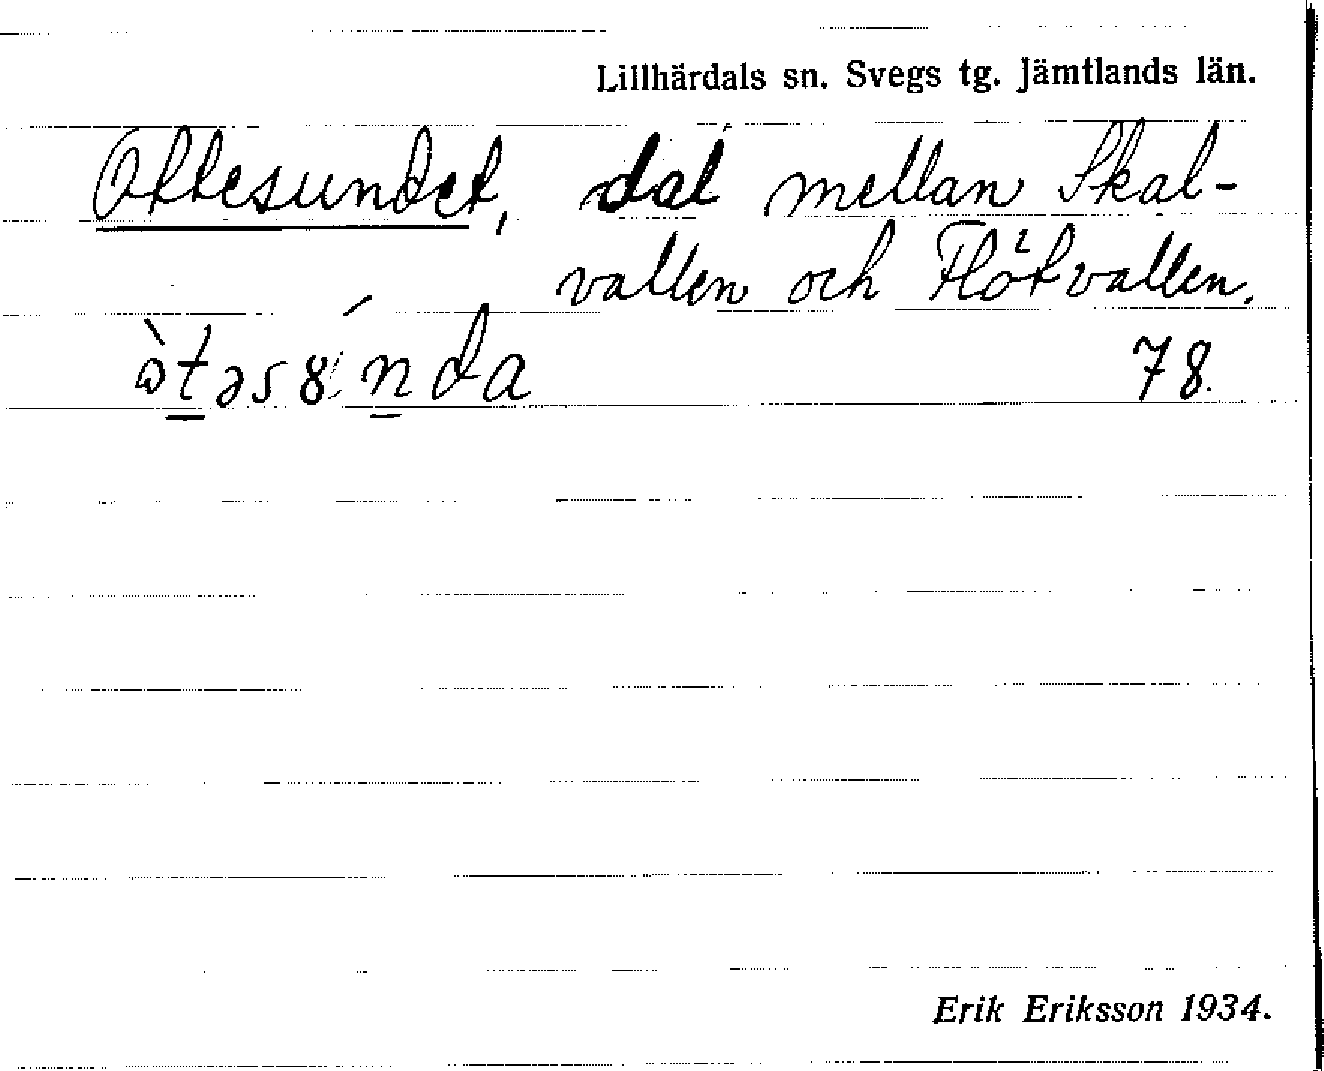 Lillhärdals sn. Svegs tg. Jämtlands län.
Ottesundet, dal mellan Skal-
vallen och Flötvallen.
78.
Erik Eriksson 1934.